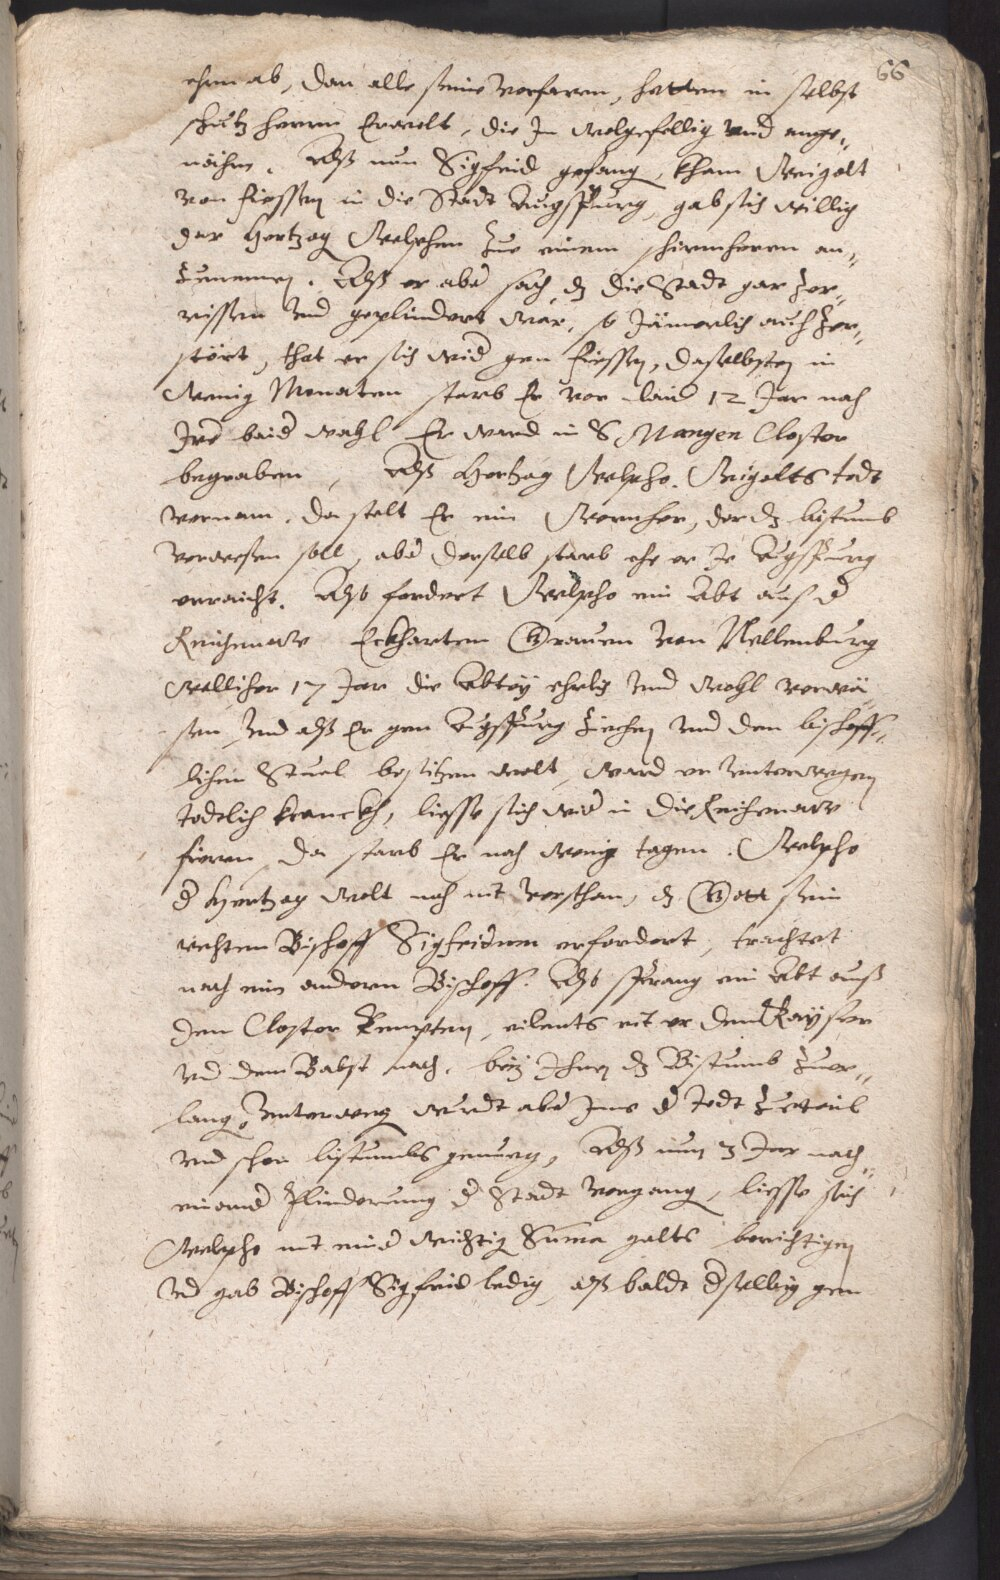 66
ehrn ab, dan alle seine vorfaren, hetten in selbst
schutz herrn Erwelt, die Jn wolgefellig vnd ange„
nöhm. Alß nun Sigfrid gefang, kham Wigolt
von Fiessen in die Stadt Augspurg, gab sich willig
der Hertzog Welphen zue einem schirmherrn an„
zunemen. Alß er aber sach, dz die Stadt gar zer„
rissen vnd geplindert war, so Jämerlich auch zer„
stört, that er sich wider gen Fiessen, daselbsten in
Wenig Monaten starb Er vor laid 12 Jar nach
Jrer baider wahl Er ward in S Mangen Closter
begraben, Alß Hertzog Welpho. Wigolts todt
vernam, da stelt Er ein Wernher, der dz bistumb
verwesen soll, aber derselb starb ehe er Je Augspurg
erraicht. Alß fordert Welpho ein Abt aus der
Reichenaw Eckharten Grauen von Nellenburg
Wellicher 17 Jar die Abtey ehrlich vnd Wohl verwä
sen, vnd alß Er gen Augspurg ziechen vnd den bischoff„
lichen Stuel besitzen wolt, ward er vnterwegen
todtlich kranckh, liesse sich wider in die Reichenaw
fieren, da starb Er nach wenig tagen. Welpho
der Hertzog wolt noch nit versthan, dz Gott sein
rechten Bischoff Sigfridum erfordert, trachtet
nach eim andern Bischoff. Alß sprang ein Abt auß
dem Closter Kempten, eilents rit er dem Kayser
vnd dem Babst nach, bey Jhnen dz Bistumb zuer„
lang, vnterweg wurdt aber Jme der Todt zuteil
vnd schon bistumbs genueg, Alß nun 3 Jar nach„
einander Plinderung der Stadt vergang, liesse sich
Welpho mit einer Wichtig Suma gelts berichtigen
vnd gab Bischoff Sigfrid ledig, alß balde derselbig gen